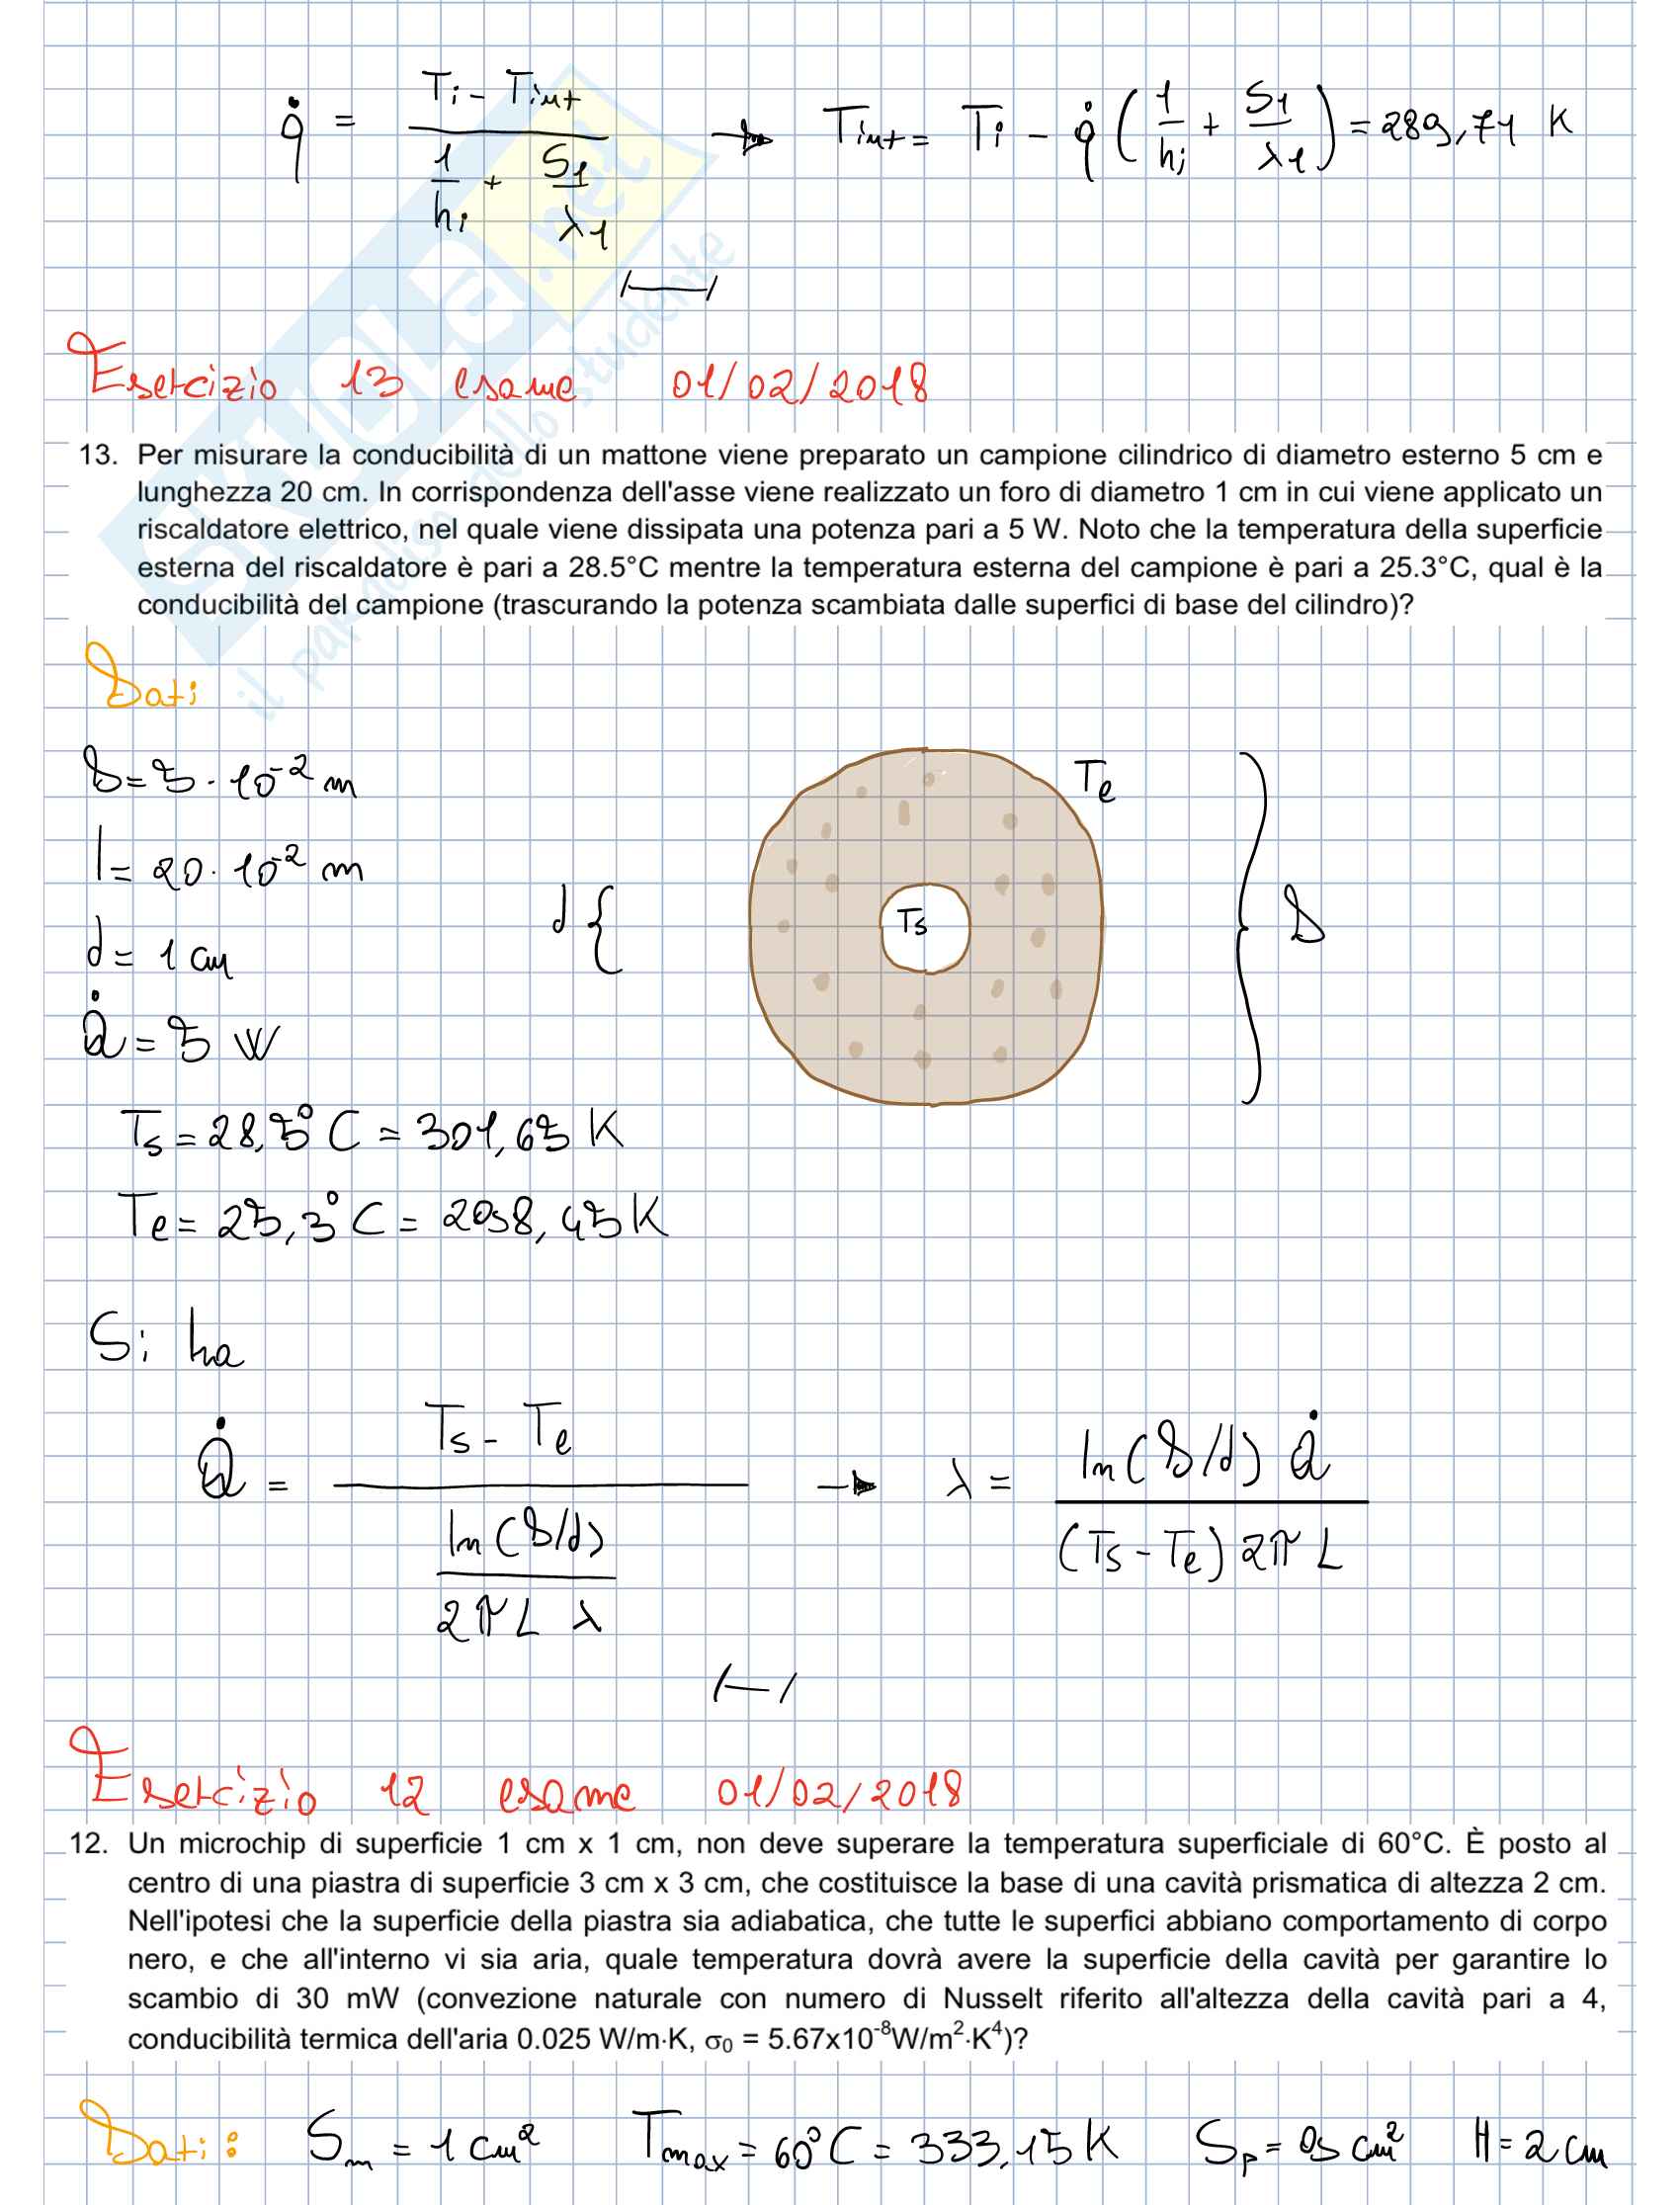 q̇ = (Ti - Tint) / (1/hi + S1/λ1) → Tint = Ti - q̇ (1/hi + S1/λ1) = 289,71 K
SKUOLA.net
il paradiso dello studente
Esercizio 13 esame 01/02/2018
13. Per misurare la conducibilità di un mattone viene preparato un campione cilindrico di diametro esterno 5 cm e
lunghezza 20 cm. In corrispondenza dell'asse viene realizzato un foro di diametro 1 cm in cui viene applicato un
riscaldatore elettrico, nel quale viene dissipata una potenza pari a 5 W. Noto che la temperatura della superficie
esterna del riscaldatore è pari a 28.5°C mentre la temperatura esterna del campione è pari a 25.3°C, qual è la
conducibilità del campione (trascurando la potenza scambiata dalle superfici di base del cilindro)?
Dati
D = 5 · 10⁻² m
l = 20 · 10⁻² m
d = 1 cm
Q̇ = 5 W
Te
d { Ts } D
Ts = 28,5°C = 301,65 K
Te = 25,3°C = 298,45 K
Si ha
Q̇ = (Ts - Te) / (ln(D/d) / 2πLλ) → λ = ln(D/d) Q̇ / (Ts - Te) 2πL
Esercizio 12 esame 01/02/2018
12. Un microchip di superficie 1 cm x 1 cm, non deve superare la temperatura superficiale di 60°C. È posto al
centro di una piastra di superficie 3 cm x 3 cm, che costituisce la base di una cavità prismatica di altezza 2 cm.
Nell'ipotesi che la superficie della piastra sia adiabatica, che tutte le superfici abbiano comportamento di corpo
nero, e che all'interno vi sia aria, quale temperatura dovrà avere la superficie della cavità per garantire lo
scambio di 30 mW (convezione naturale con numero di Nusselt riferito all'altezza della cavità pari a 4,
conducibilità termica dell'aria 0.025 W/m·K, σ₀ = 5.67x10⁻⁸W/m²·K⁴)?
Dati: Sm = 1 cm² Tmax = 60°C = 333,15 K Sp = 9 cm² H = 2 cm